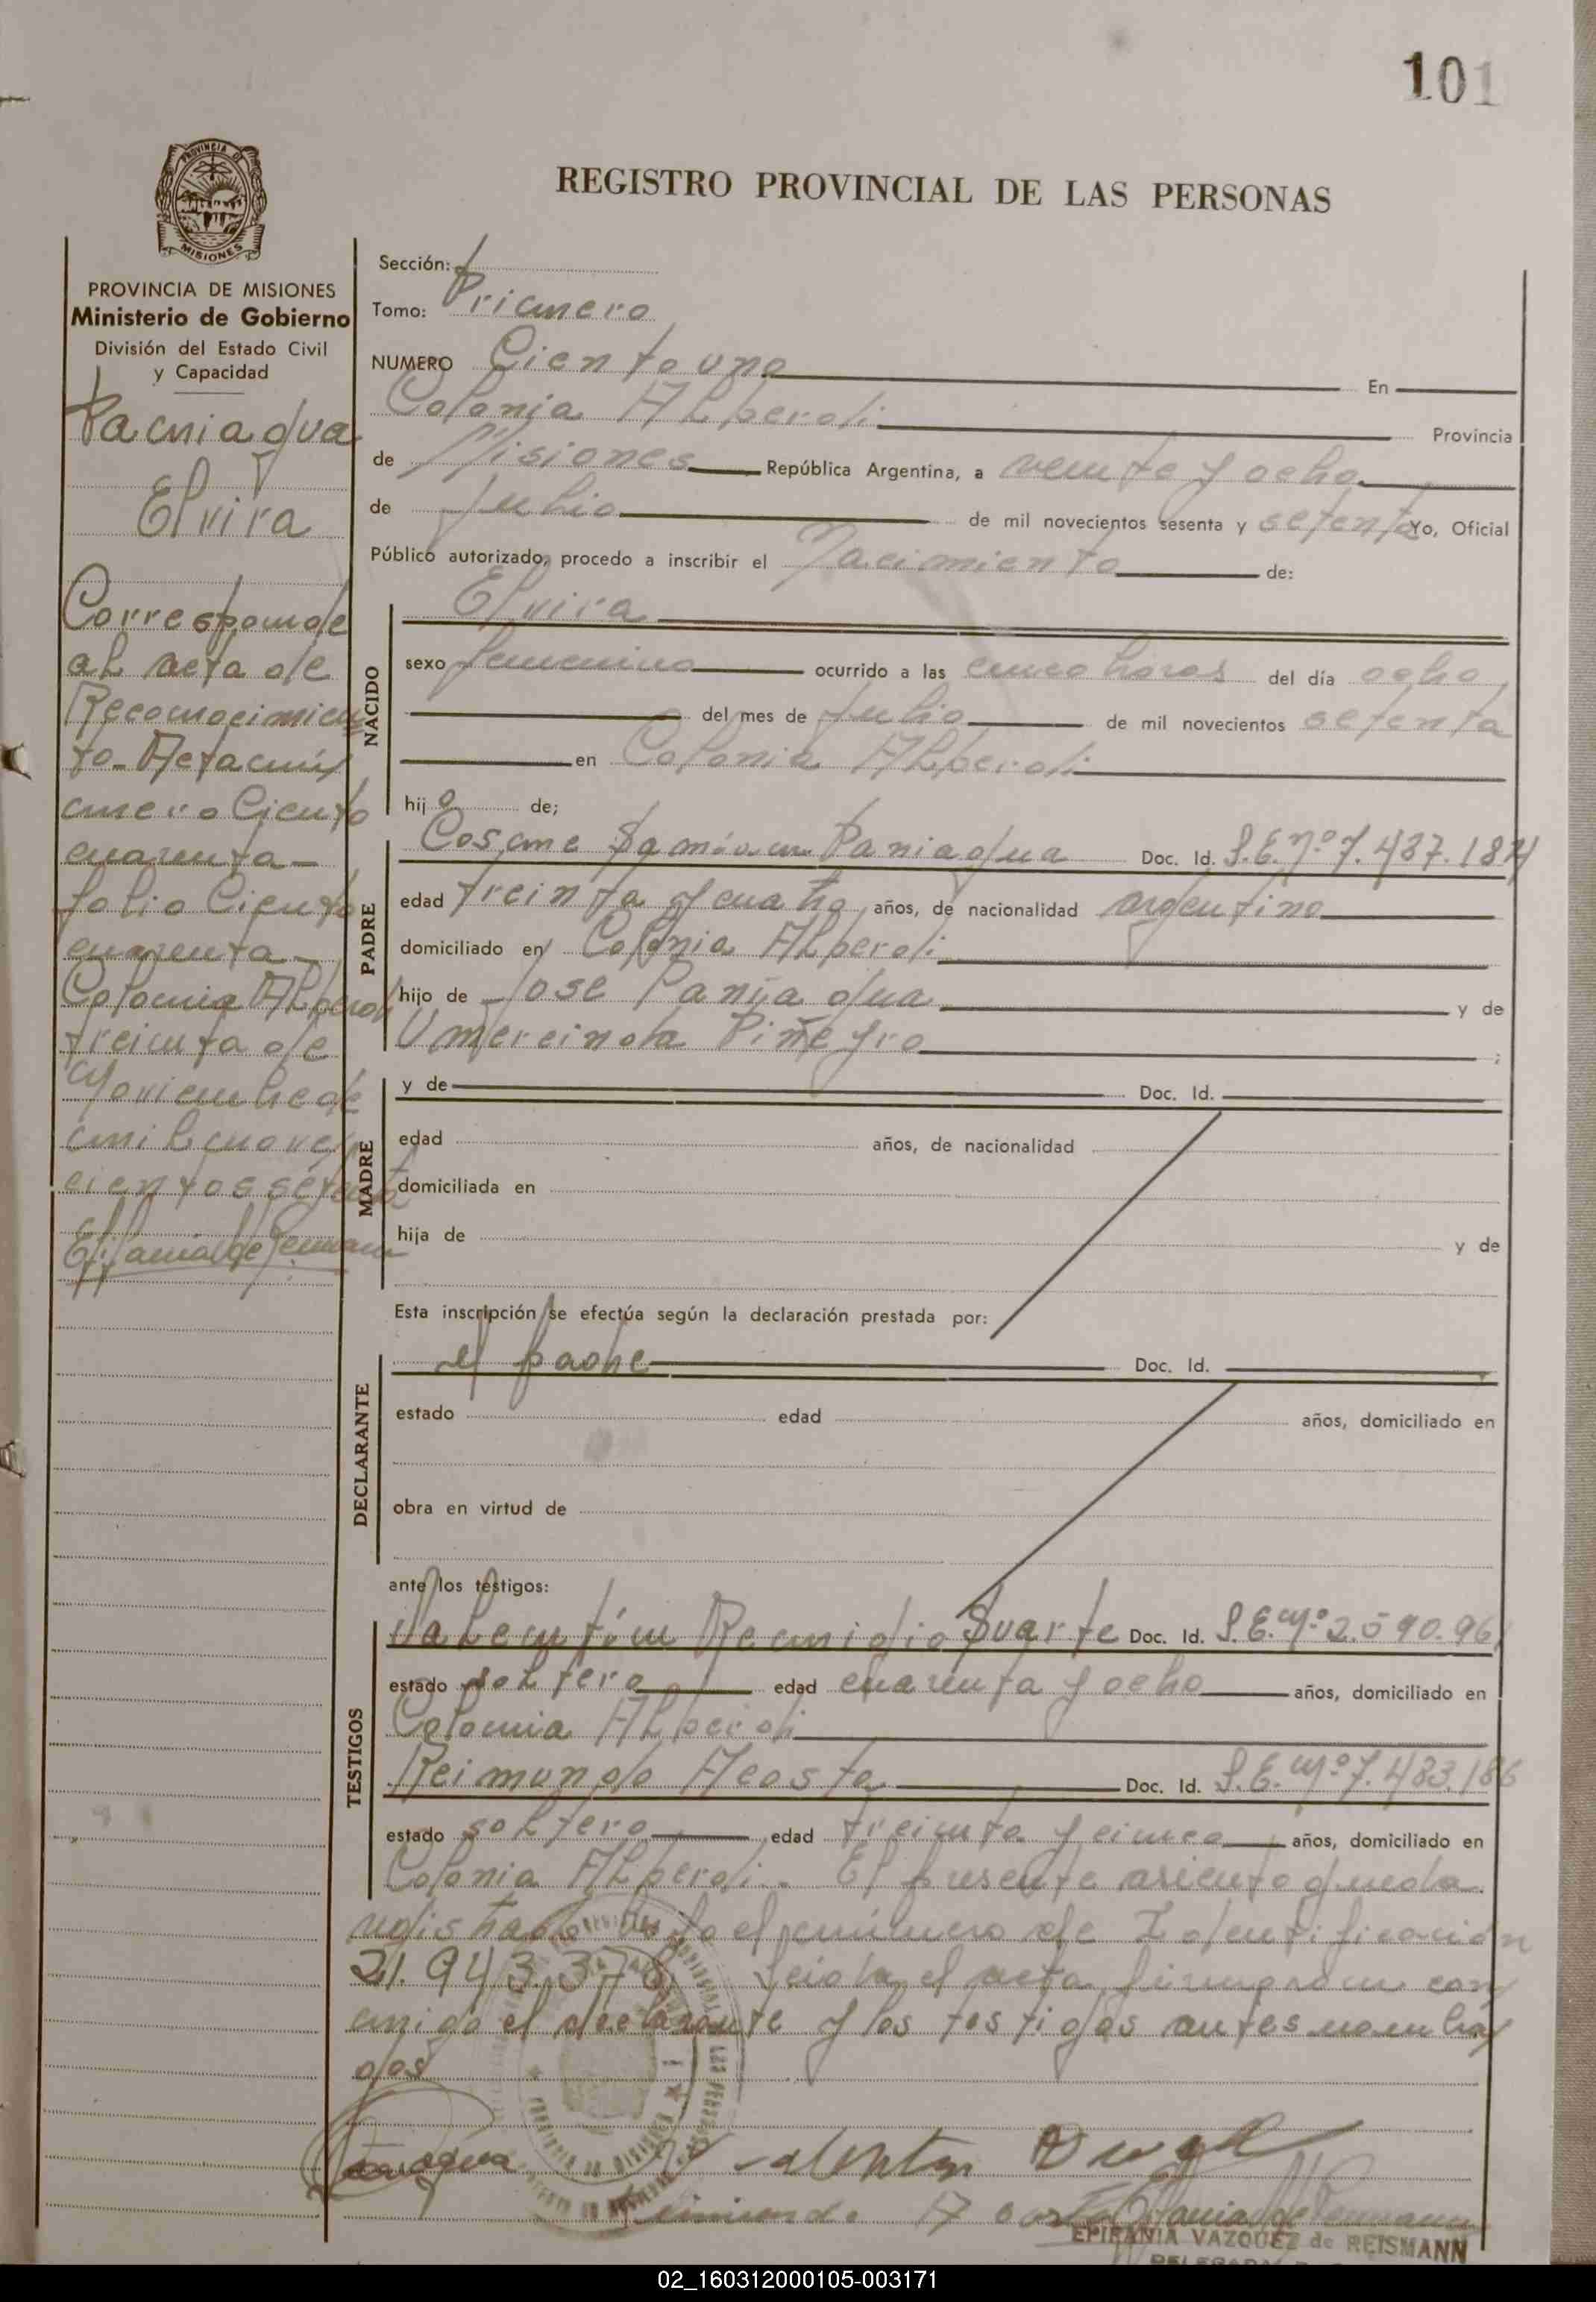 101
PROVINCIA DE
MISIONES
REGISTRO PROVINCIAL DE LAS PERSONAS
PROVINCIA DE MISIONES
Ministerio de Gobierno
División del Estado Civil
y Capacidad
Paniagua
Elvira
Corresponde
al acta de
Reconocimien
to - Acta nú
mero Ciento
cuarenta -
folio Ciento
cuarenta -
Colonia Alberdi
treinta de
Noviembre de
mil nove
cientos setenta
Sección:
Tomo: Primero
NUMERO Ciento uno En
Colonia Alberdi Provincia
de Misiones República Argentina, a veinte y ocho
de Julio de mil novecientos sesenta y setenta Yo, Oficial
Público autorizado, procedo a inscribir el Nacimiento de:
NACIDO
Elvira
sexo femenino ocurrido a las cinco horas del día ocho
del mes de Julio de mil novecientos setenta
en Colonia Alberdi
hija de;
PADRE
Cosme Damián Paniagua Doc. Id.
edad treinta y cuatro años, de nacionalidad argentino
domiciliado en Colonia Alberdi
hijo de José Paniagua y de
Umercinda Piñeyro ;
MADRE
y de Doc. Id.
edad años, de nacionalidad
domiciliada en
hija de y de
Esta inscripción se efectúa según la declaración prestada por:
DECLARANTE
el padre Doc. Id.
estado edad años, domiciliado en
obra en virtud de
ante los testigos:
TESTIGOS
Valentín Remigio Duarte Doc. Id. 2.590.961
estado soltero edad cuarenta y ocho años, domiciliado en
Colonia Alberdi
Reimundo Acosta Doc. Id. 7.483.186
estado soltero edad treinta y cinco años, domiciliado en
Colonia Alberdi. El presente asiento queda
registrado bajo el número de Identificación
21.943.378 Leida el acta firmaron con
migo el declarante y los testigos antes nombra
dos
Paniagua
Valentin
Reimundo Acosta
EPIFANIA VAZQUEZ de REISMANN
02_160312000105-003171